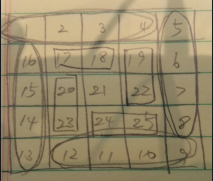 2 3 4 5
16 17 18 19 6
15 20 21 22 7
14 23 24 25 8
13 12 11 10 9